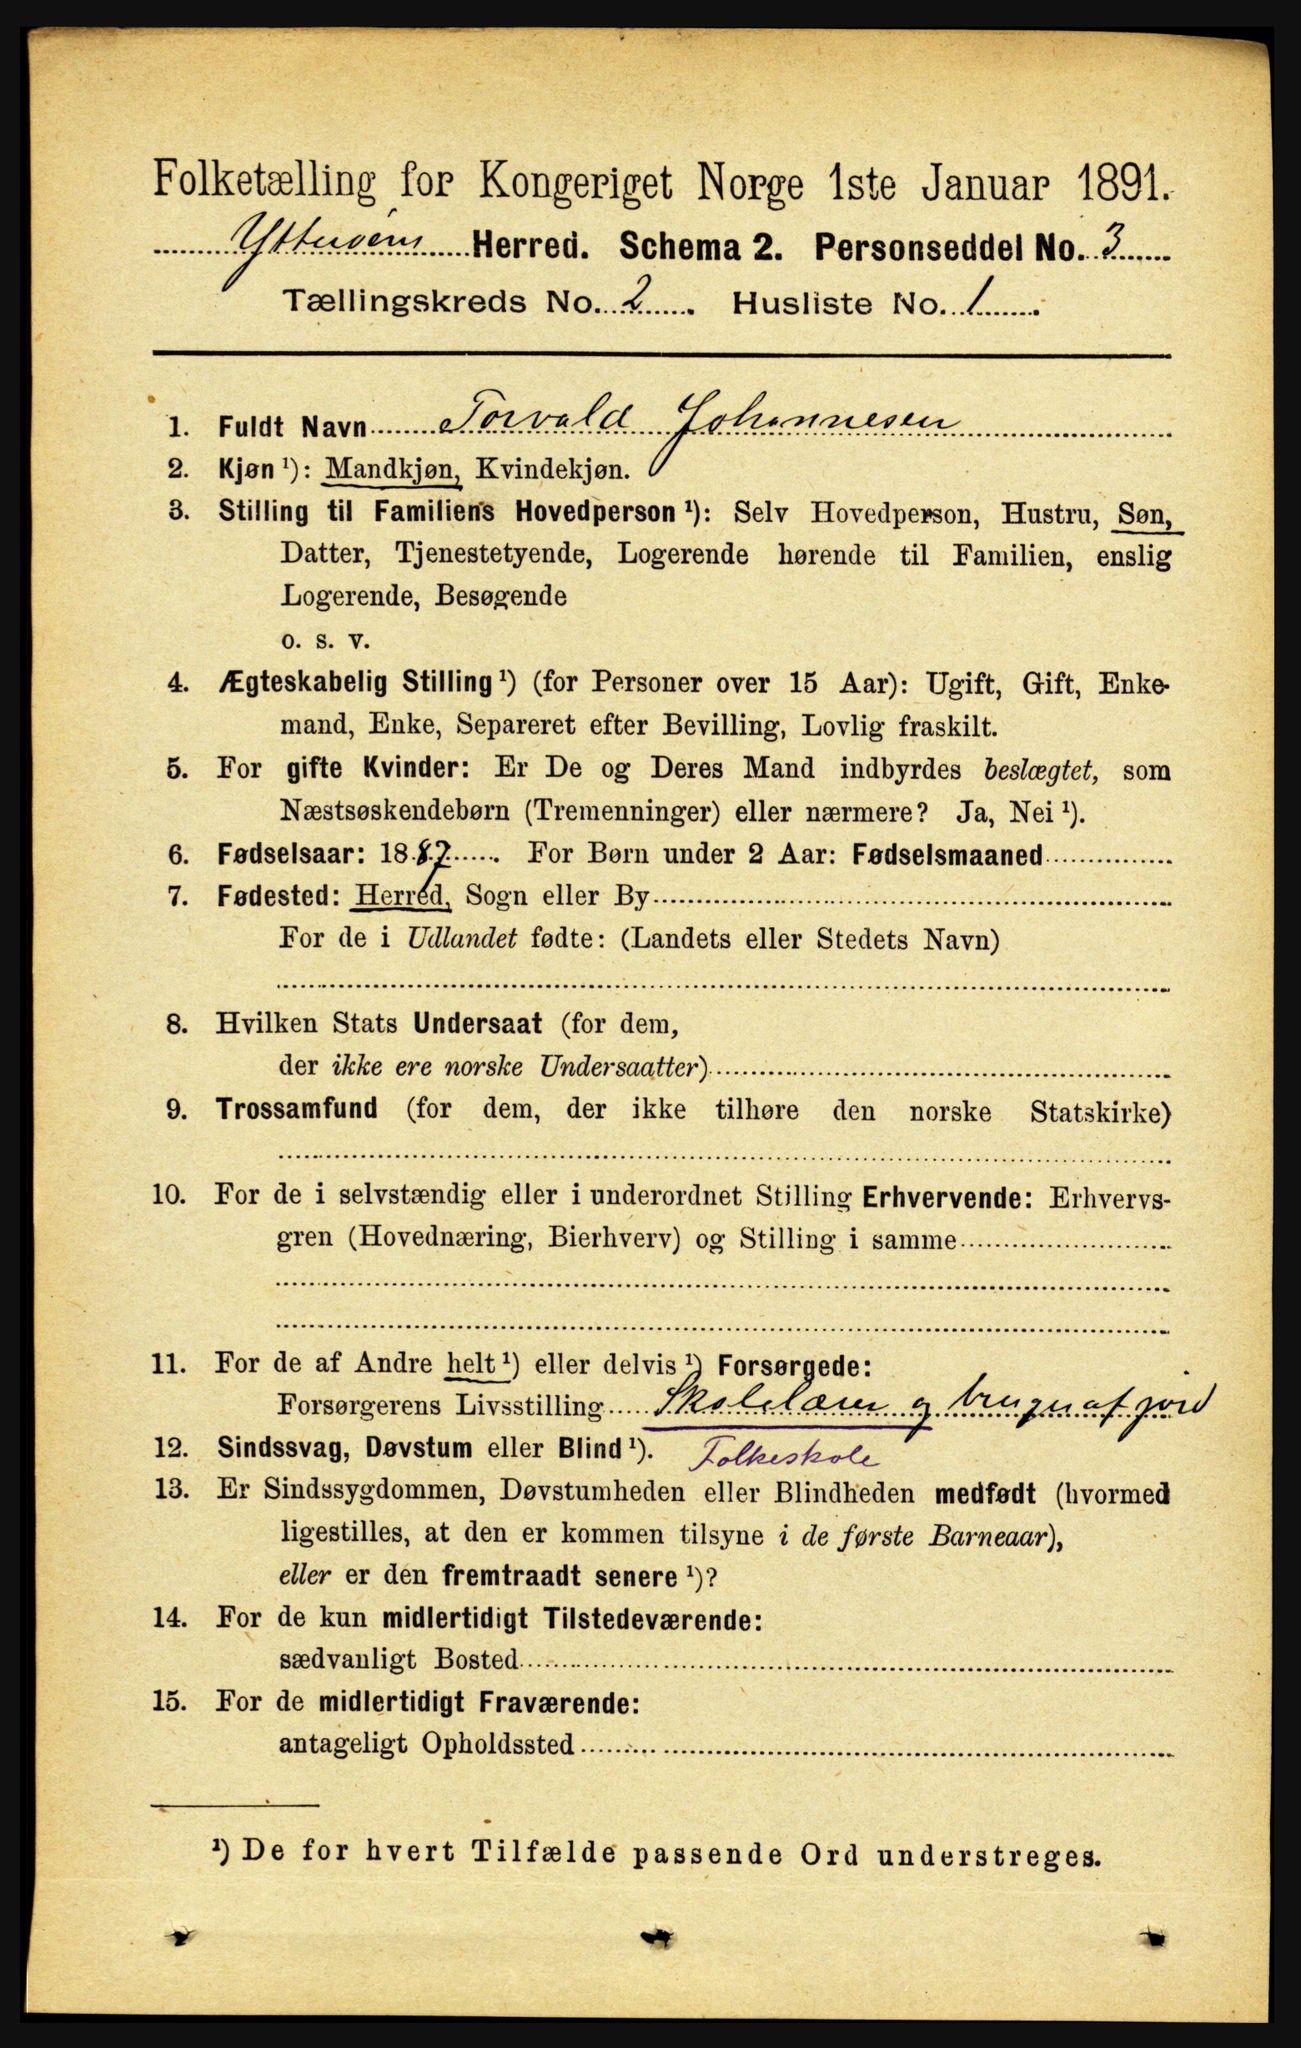 Folketælling for Kongeriget Norge 1ste Januar 1891.
Ytterøens Herred. Schema 2. Personseddel No. 3
Tællingskreds No. 2 . Husliste No. 1 .
1. Fuldt Navn Torvald Johannesen
2. Kjøn ¹): Mandkjøn, Kvindekjøn.
3. Stilling til Familiens Hovedperson ¹): Selv Hovedperson, Hustru, Søn,
Datter, Tjenestetyende, Logerende hørende til Familien, enslig
Logerende, Besøgende
o. s. v.
4. Ægteskabelig Stilling ¹) (for Personer over 15 Aar): Ugift, Gift, Enke-
mand, Enke, Separeret efter Bevilling, Lovlig fraskilt.
5. For gifte Kvinder: Er De og Deres Mand indbyrdes beslægtet, som
Næstsøskendebørn (Tremenninger) eller nærmere? Ja, Nei ¹).
6. Fødselsaar: 1887 . For Børn under 2 Aar: Fødselsmaaned
7. Fødested: Herred, Sogn eller By
For de i Udlandet fødte: (Landets eller Stedets Navn)
8. Hvilken Stats Undersaat (for dem,
der ikke ere norske Undersaatter)
9. Trossamfund (for dem, der ikke tilhøre den norske Statskirke)
10. For de i selvstændig eller i underordnet Stilling Erhvervende: Erhvervs-
gren (Hovednæring, Bierhverv) og Stilling i samme
11. For de af Andre helt ¹) eller delvis ¹) Forsørgede:
Forsørgerens Livsstilling Skolelærer og bruger af jord
12. Sindssvag, Døvstum eller Blind ¹). Folkeskole
13. Er Sindssygdommen, Døvstumheden eller Blindheden medfødt (hvormed
ligestilles, at den er kommen tilsyne i de første Barneaar),
eller er den fremtraadt senere ¹)?
14. For de kun midlertidigt Tilstedeværende:
sædvanligt Bosted
15. For de midlertidigt Fraværende:
antageligt Opholdssted
¹) De for hvert Tilfælde passende Ord understreges.